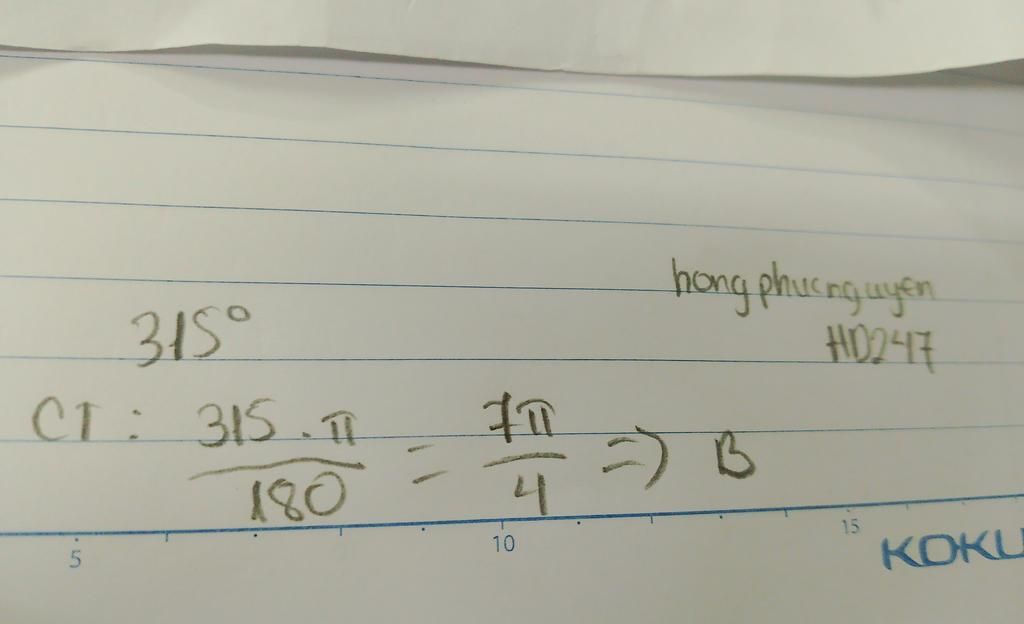 hongphucnguyen
HD247
315°
CT: 315.π/180 = 7π/4 => B
5 10 15
KOKU